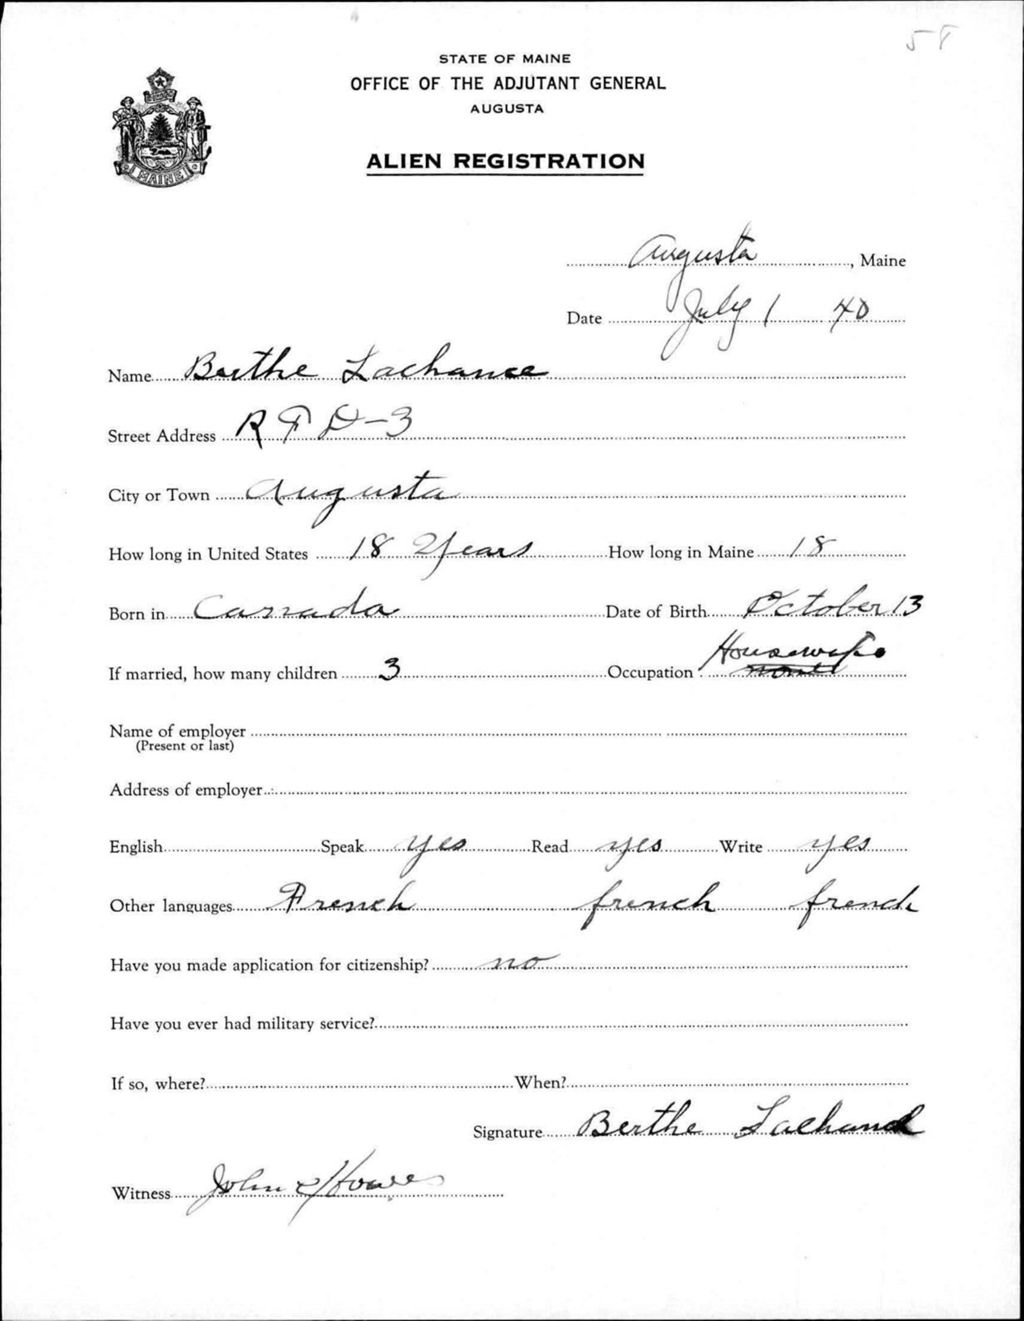 58
STATE OF MAINE
OFFICE OF THE ADJUTANT GENERAL
AUGUSTA
MAINE
ALIEN REGISTRATION
Augusta, Maine
Date July 1 40
Name Berthe Lachance
Street Address R F D-3
City or Town Augusta
How long in United States 18 Years How long in Maine 18
Born in Canada Date of Birth October 13
If married, how many children 3 Occupation Housewife
Name of employer
(Present or last)
Address of employer
English Speak yes Read yes Write yes
Other languages French french french
Have you made application for citizenship? no
Have you ever had military service?
If so, where? When?
Signature Berthe Lachance
Witness John Howe